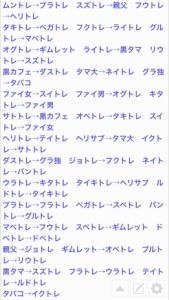 ムントレ→ブラトレ　スズトレ→親父　フウトレ
→ヘリトレ
タキトレ→ベガトレ　フクトレ→ライトレ　グル
トレ→マベトレ
オグトレ→ギムレット　ライトレ→黒タマ　リウ
トレ→スズトレ
黒カフェ→ダストレ　タマ大→ネイトレ　グラ独
→タバコ
ファイ女→スイトレ　ファイ男→オグトレ　キタ
トレ→ファイ男
サトトレ→黒カフェ　オベトレ→タキトレ　スイ
トレ→ファイ女
ヘリトレ→テイトレ　ヘリサブ→タマ大　イクト
レ→サトトレ
ダストレ→グラ独　ジョトレ→フクトレ　ネイト
レ→バントレ
ウラトレ→キタトレ　タイキトレ→ヘリサブ　ル
ドトレ→タイキトレ
ブラトレ→フラトレ　ベガトレ→スペトレ　バン
トレ→グルトレ
マベトレ→フウトレ　スペトレ→ギムレット　ド
ベトレ→ドベトレ
親父→ジョトレ　ギムレット→オベトレ　ブルト
レ→リウトレ
黒タマ→スズトレ　フラトレ→ウラトレ　テイト
レ→ルドトレ
タバコ→イクトレ